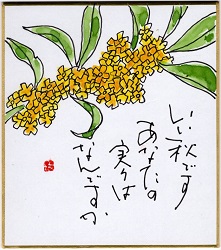 いい秋です
あなたの
実りは
なんですか